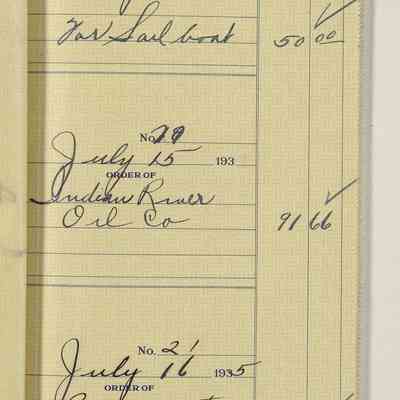 For Sail boat 50 00
No.
July 15 193
ORDER OF
Indian River
Oil Co 91 66
No. 21
July 16 1935
ORDER OF